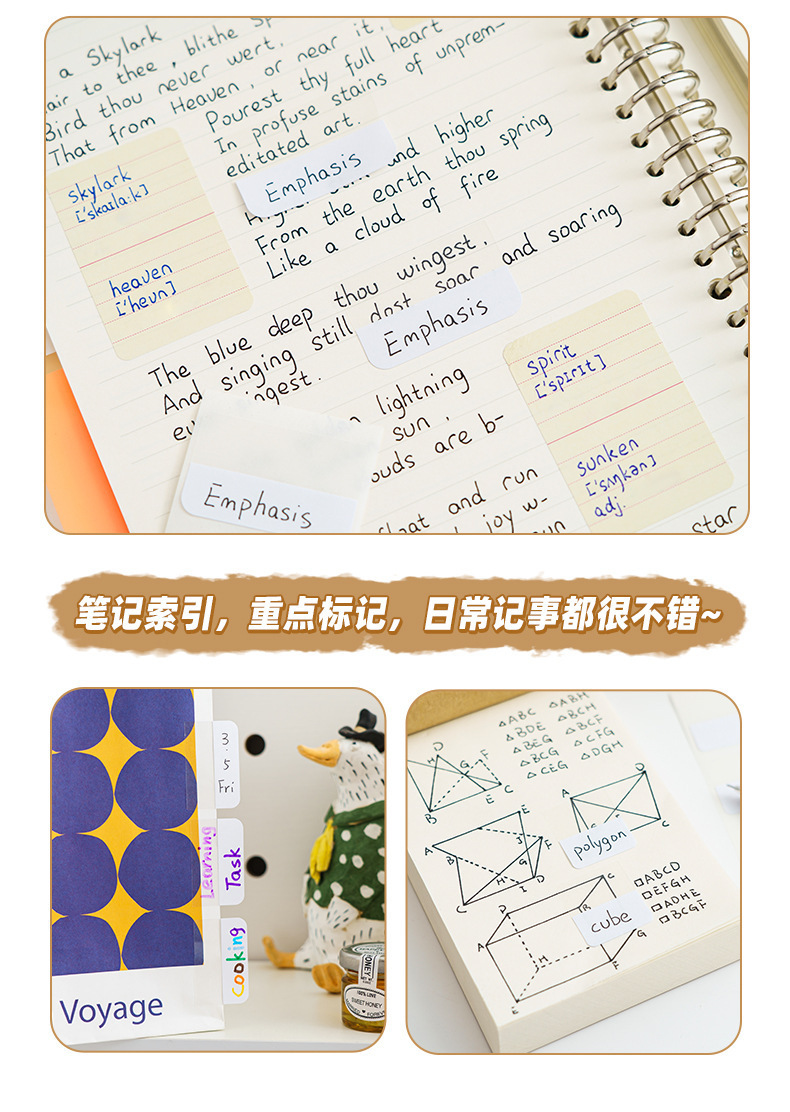 a Skylark
air to thee, blithe Sp
Bird thou never wert,
That from Heaven, or near it,
Pourest thy full heart
In profuse stains of unprem-
editated art.
Emphasis
and higher
From the earth thou spring
Like a cloud of fire
skylark
['skaɪlaːk]
heaven
['hevn]
The blue deep thou wingest,
And singing still dost soar and soaring
Emphasis
ingest.
lightning
sun,
ouds are b-
Emphasis
float and run
joy w-
spirit
['spɪrɪt]
sunken
['sʌŋkən]
adj.
star
笔记索引，重点标记，日常记事都很不错~
3.
5
Fri
Learning
Task
cooking
Voyage
HONEY
SWEET HONEY
△ABC △ABH
△BDE △BCH
△BEG △BCF
△BCG △CFG
△CEG △DGH
polygon
cube
□ABCD
□EFGH
□ADHE
□BCGF